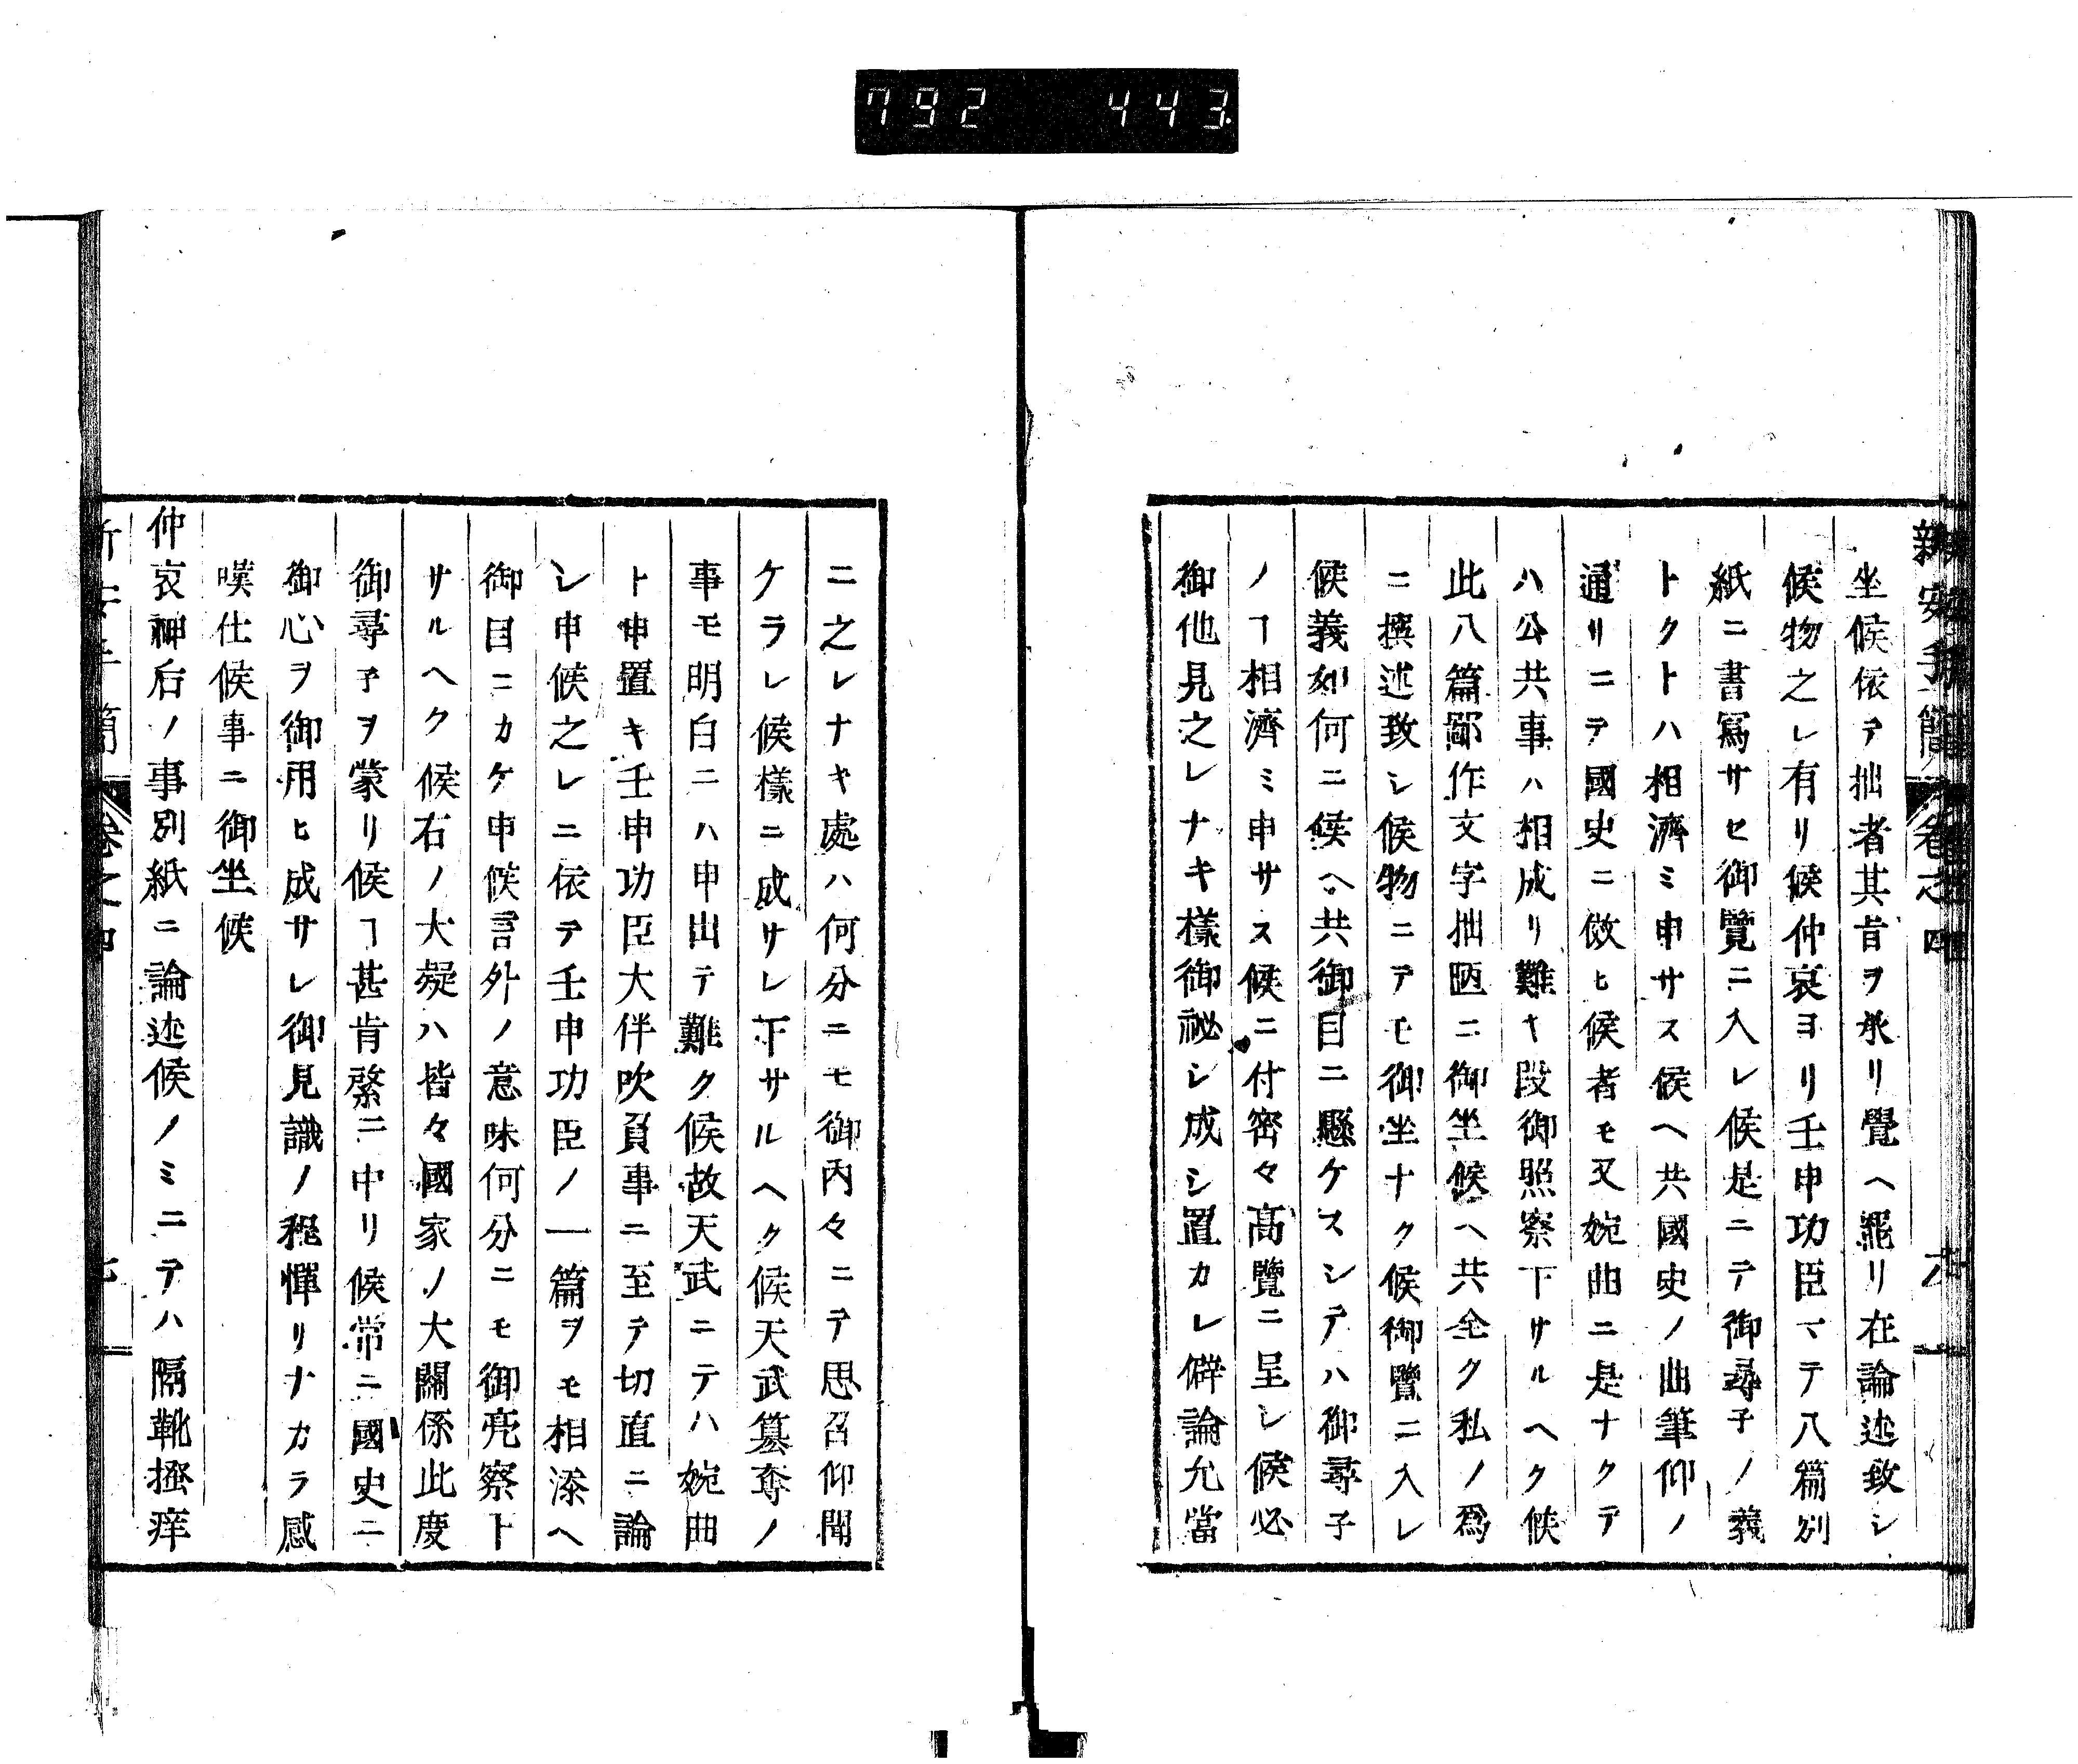 792 443
新安手簡 卷之四 六
坐候依テ拙者其旨ヲ承リ覺ヘ罷リ在論述致シ
候物之レ有リ候仲哀ヨリ壬申功臣マテ八篇別
紙ニ書寫サセ御覽ニ入レ候是ニテ御尋子ノ義
トクトハ相濟ミ申サス候ヘ共國史ノ曲筆仰ノ
通リニテ國史ニ倣ヒ候者モ又婉曲ニ是ナクテ
ハ公共事ハ相成リ難キ段御照察下サルヘク候
此八篇鄙作文字拙陋ニ御坐候ヘ共全ク私ノ爲
ニ撰述致シ候物ニテモ御坐ナク候御覽ニ入レ
候義如何ニ候ヘ共御目ニ懸ケスシテハ御尋子
ノヿ相濟ミ申サス候ニ付密々高覽ニ呈レ候必
御他見之レナキ樣御祕シ成シ置カレ僻論允當
ニ之レナキ處ハ何分ニモ御內々ニテ思召仰聞
ケラレ候樣ニ成サレ下サルヘク候天武簒奪ノ
事モ明白ニハ申出テ難ク候故天武ニテハ婉曲
ト申置キ壬申功臣大伴吹負事ニ至テ切直ニ論
シ申候之レニ依テ壬申功臣ノ一篇ヲモ相添ヘ
御目ニカケ申候言外ノ意味何分ニモ御亮察下
サルヘク候右ノ大疑ハ皆々國家ノ大關係此度
御尋子ヲ蒙リ候ヿ甚肯綮ニ中リ候常ニ國史ニ
御心ヲ御用ヒ成サレ御見識ノ程憚リナカラ感
嘆仕候事ニ御坐候
仲哀神后ノ事別紙ニ論述候ノミニテハ隔靴搔痒
新安手簡 卷之四 七